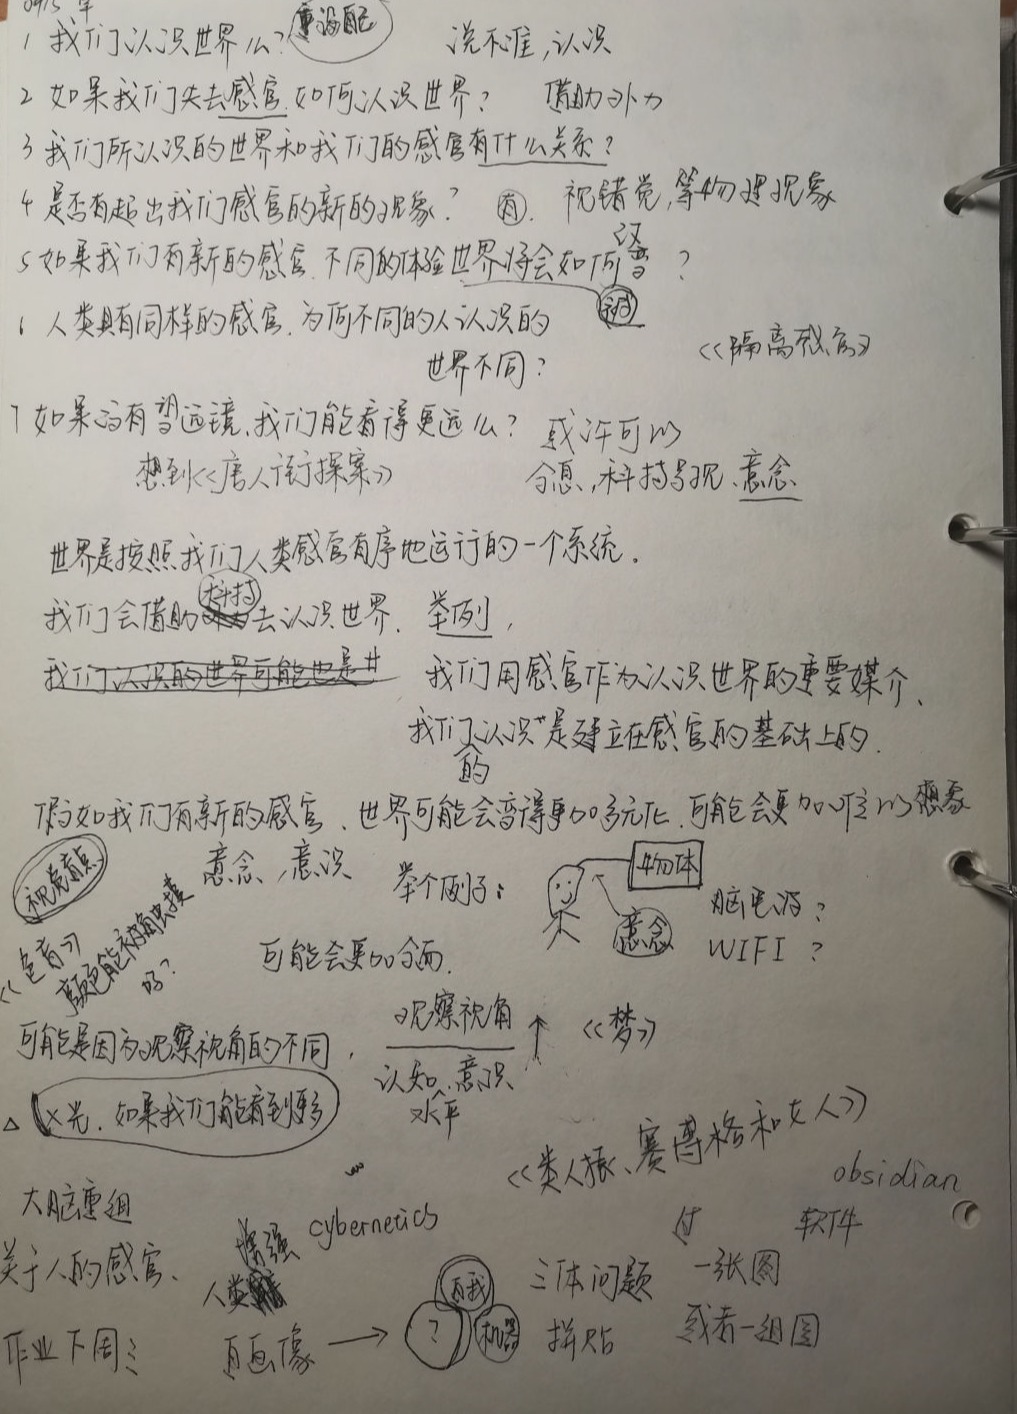 1 我们认识世界么? 重设配 说不准,认识
2 如果我们失去感官.如何认识世界? 借助外力
3 我们所认识的世界和我们的感官有什么关系?
4 是否有超出我们感官的新的现象? 有. 视错觉,等物理现象
5 如果我们有新的感官.不同的体验世界将会如何改变?
6 人类具有同样的感官.为何不同的人认识的
世界不同?
《隔离感官》
7 如果没有望远镜、我们能看得更远么? 或许可以
想到《唐人街探案》
科技导观、意念
世界是按照我们人类感官有序地运行的一个系统.
我们会借助科技去认识世界. 举例,
我们认识的世界可能也是井
我们用感官作为认识世界的重要媒介、
我们的认识"是建立在感官的基础上的.
假如我们有新的感官、世界可能会变得更加多元化.可能会更加难以想象
视觉盲点
意念、意识
举个例子: 物体
意念
脑电波?
WIFI?
《色盲》
颜色能被触摸
吗?
可能会更加全面.
可能是因为观察视角的不同,
观察视角
认知、意识
水平
《梦》
△ X光.如果我们能看到更多
《类人猿、赛博格和女人》
大脑重组
cybernetics
obsidian
软件
关于人的感官、
增强
人类
作业下周:
自画像 → ? 自我 机器
三体问题
拼贴
一张图
或者一组图